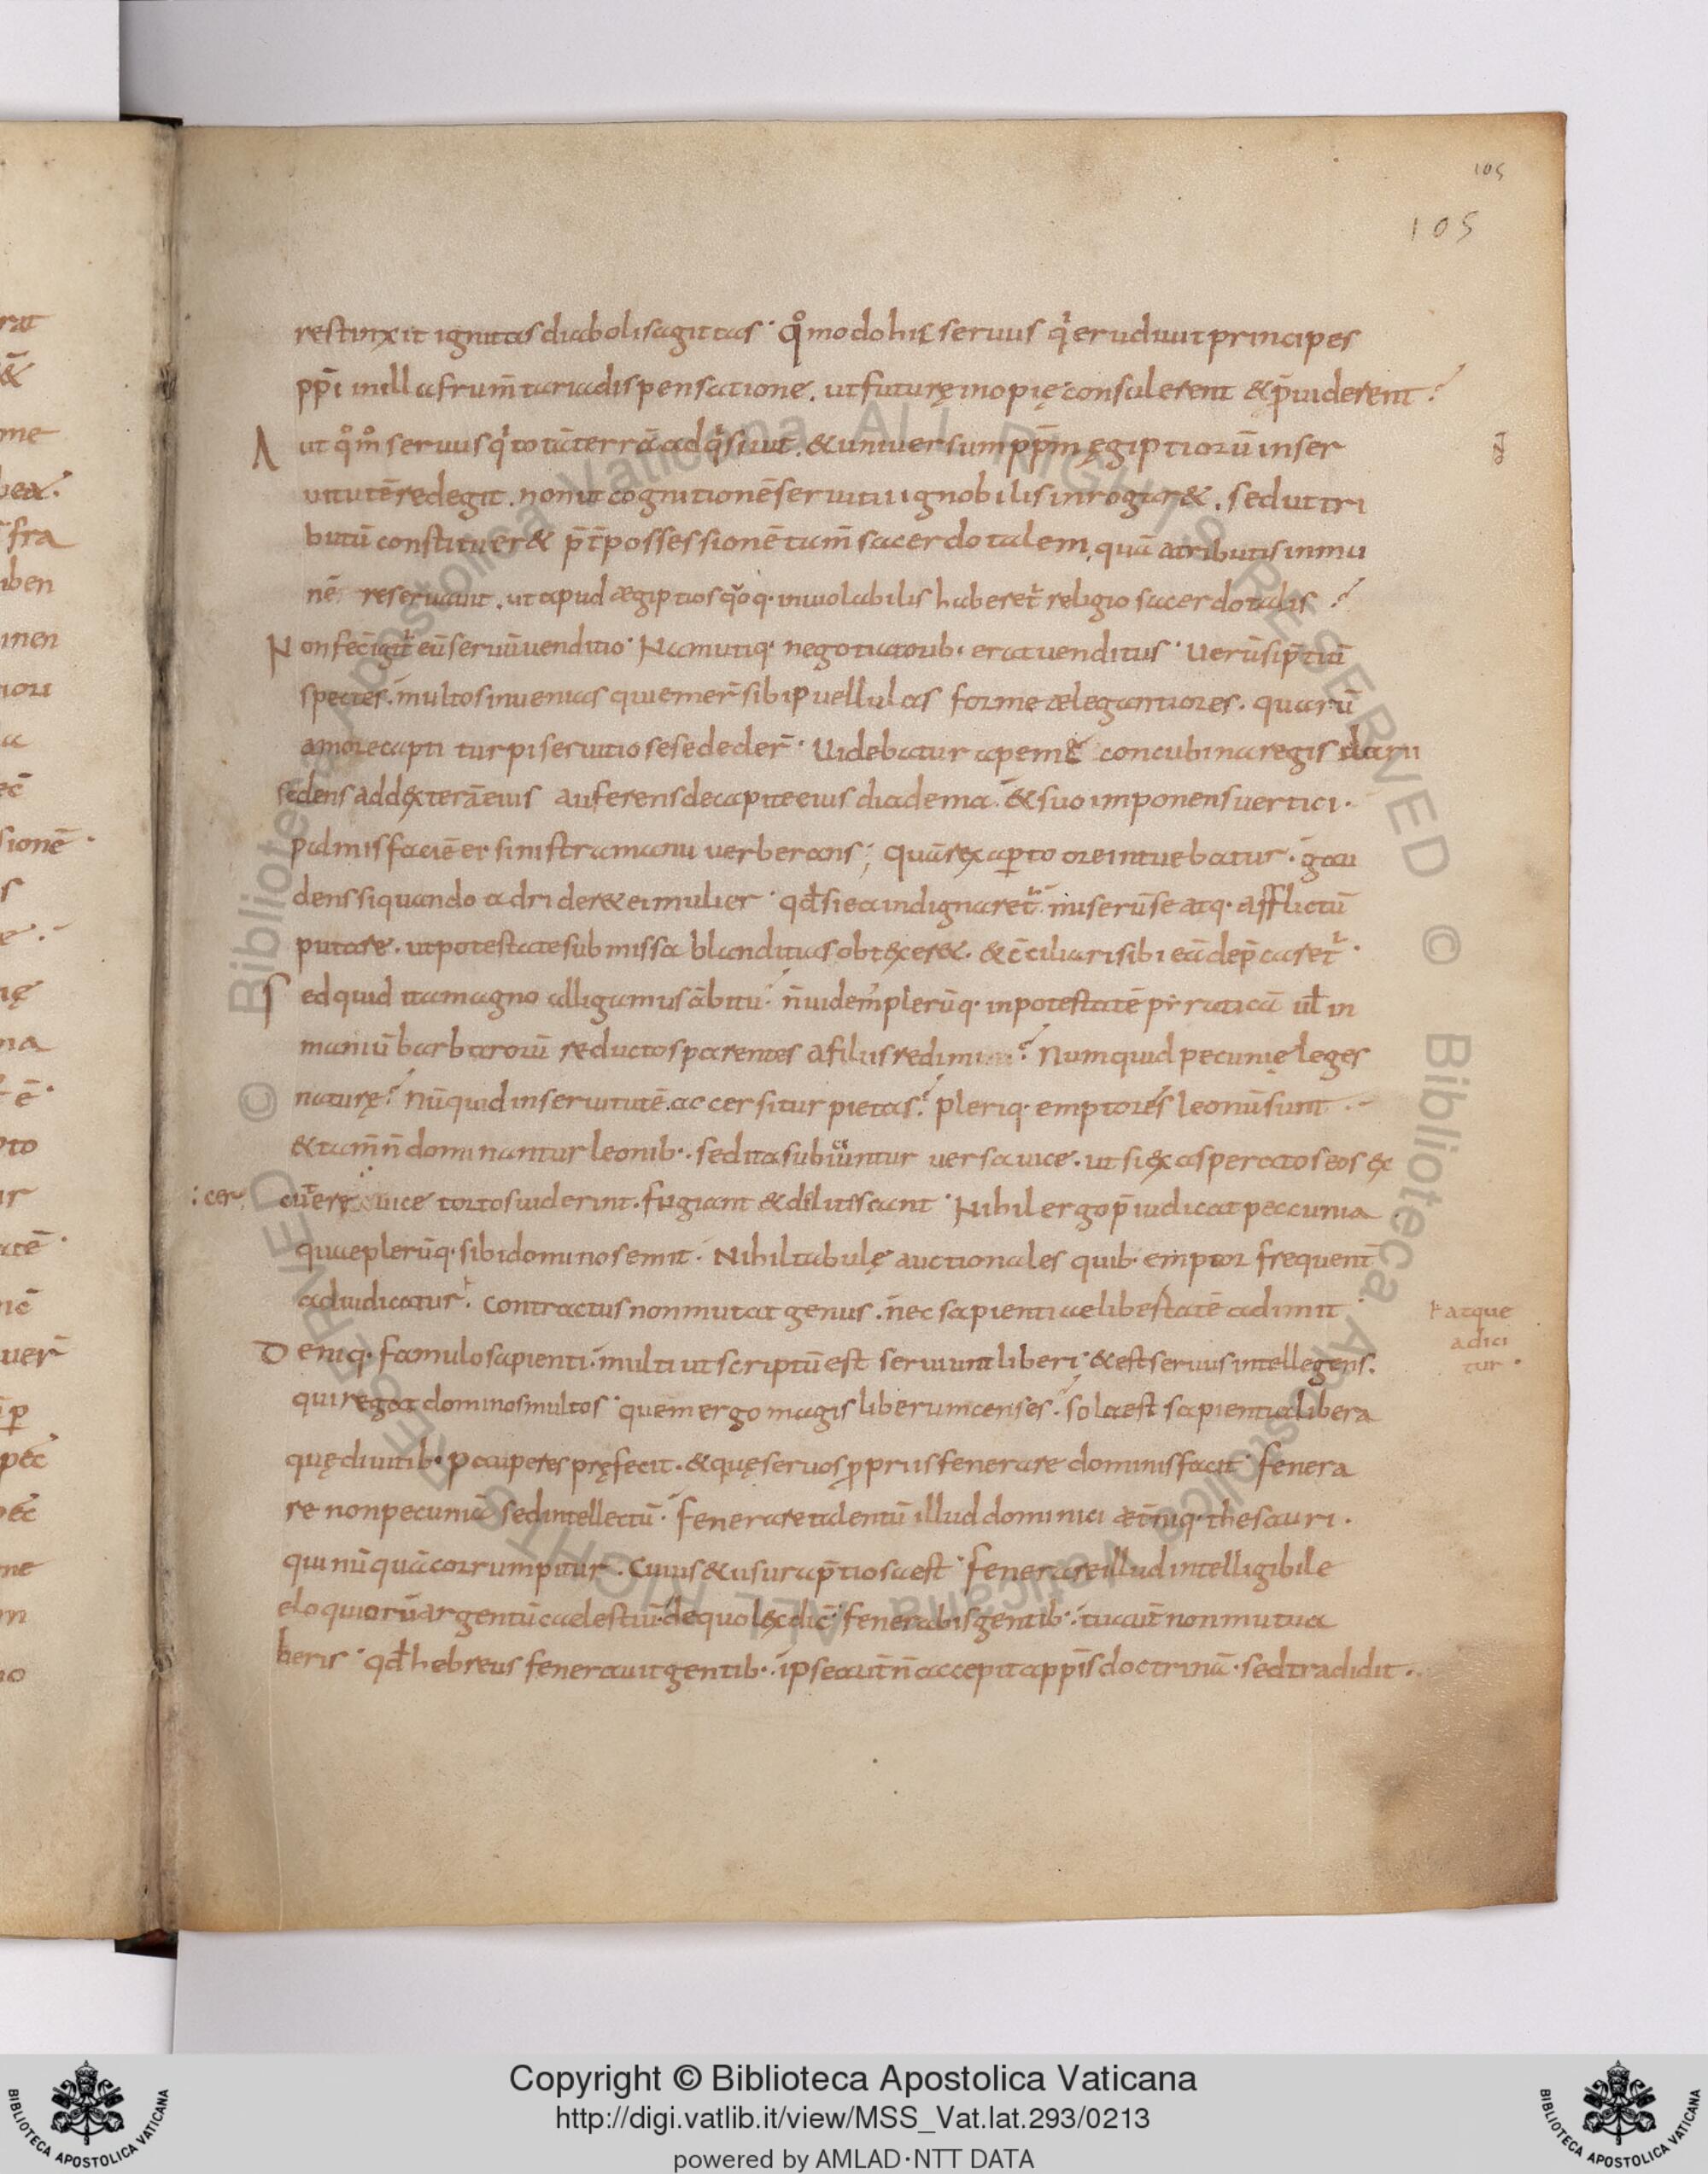 105
105
restinxit ignitas diaboli sagittas · qͦmodo hic seruus qͥ erudiuit principes
pp̄i in illa frum̄taria dispensatione . ut futurę inopię consulerent & p̄uiderent ?
Aut qͦm̊ seruus qͥ totā terrā adqͥsiuit . & uniuersum pp̄m ęgiptiorū in ser
uitutē redegit . non ut cognitionē seruitii ignobilis inrogar& . sed ut tri
butū constituer& p̄t̄ possessionē tam̄ sacerdotalem , quā a tributis inmu
nē reseruauit . ut apud ægiptios qͦq· inuiolabilis haberet᷑ religio sacerdotalis ?
Non fec̄ igit᷑ eū seruū uenditio · Nam utiq· negotiatorib· erat uenditus · Uerū si p̄tiū
spectes . multos inuenias qui emer̄ sibi puellulas forme ælegantiores . quarū
amore capti turpi seruitio sese deder̄ · Uidebatur apemę concubina regis darii
sedens ad dexterā eius auferens de capite eius diadema . & suo imponens uertici .
palmis faciē ei sinistra manu uerberans ; quā rex aperto ore intuebatur . gau
dens si quando adrider& ei mulier · qd̄ si ea indignaret᷑ . miserū se atq· afflictū
putare . ut potestate submissa blanditias obtexer& . & c̄ciliari sibi eā dep̄caret᷑ .
Sed quid ita magno alligamus ābitu ? n̄ uidem᷒ plerūq· in potestatē pirraticā ul̄ in
manū barbarorū reductos parentes a filiis redimi ? Numquid pecunię leges
naturę ? Nūquid in seruitutē accersitur pietas ? pleriq· emptores leonū sunt .
& tam̄ n̄ dominantur leonib· . sed ita subiciuntur uersa uice . ut si exasperatos eos ex
: cer
cut̄ere uice tortos uiderint . fugiant & delitiscant · Nihil ergo p̄iudicat peccunia
quae plerūq· sibi dominos emit . Nihil tabulę auctionales quib· emptor frequent̄
adiudicatur . contractus non mutat genus . nec sapientiae libertatē adimit ·
atque
adici
tur ·
Deniq· famulo sapienti . multi ut scriptū est seruiunt liberi · & est seruus intellegens .
qui regat dominos multos · quem ergo magis liberum censes . sola est sapientia libera
quę diuitib· pauperes pręfecit . & quę seruos ꝓpriis fenerare dominis facit · fenera
re non pecuniā sed intellectū . fenerare talentū illud dominici æt̄niq· thesauri .
qui nūquā corrumpitur . Cuius & usura p̄tiosa est · fenerare illud intelligibile
eloquiorū argentū caelestiū . de quo lex dic̄ . fenerabis gentib· . tu aut̄ non mutua
beris · qd̄ hebreus fenerauit gentib· . ipse aut̄ n̄ accepit a pp̄is doctrinā . sed tradidit .
Copyright © Biblioteca Apostolica Vaticana
http://digi.vatlib.it/view/MSS_Vat.lat.293/0213
powered by AMLAD·NTT DATA